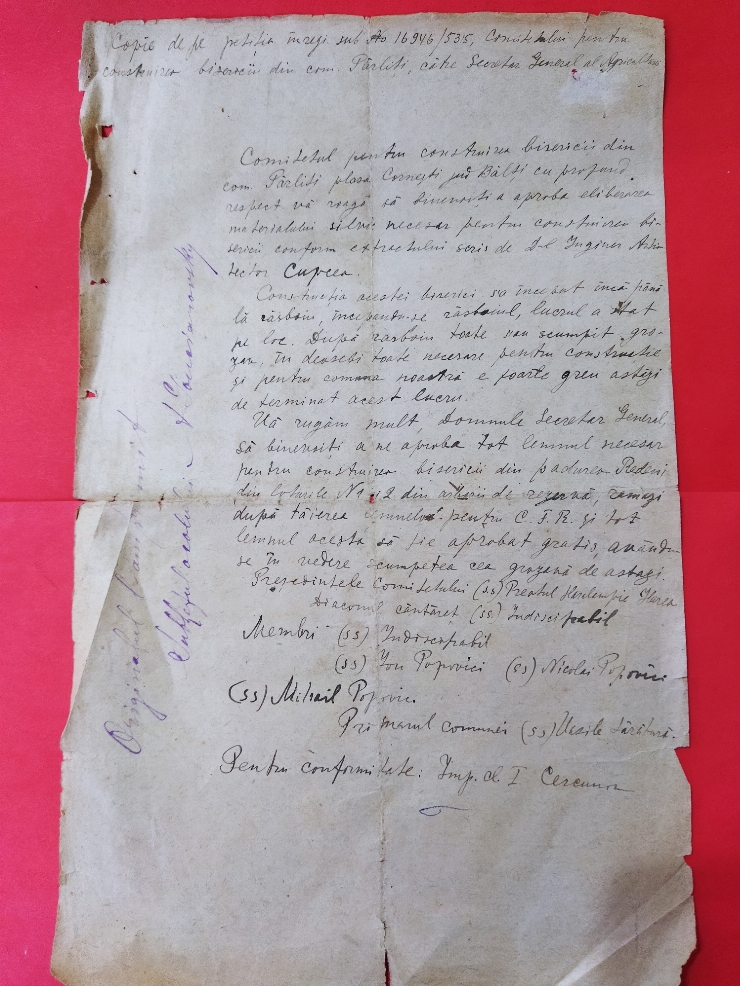 Copie de pe petiția înregi. sub No 16946/535, Comitetului pentru
construirea bisericii din com. Pârliți, către Secretar General al Agriculturii
Comitetul pentru construirea bisericii din
com. Pârliți plasa Cornești jud Bălți cu profund
respect vă roagă să binevoiți a aproba eliberarea
materialului silvic necesar pentru construirea bi-
sericii conform extractului scris de D-l Inginer Arhi-
tector Cupcea.
Construcția acestei biserici s'a început încă până
la răsboiu, începându-se răsboiul, lucrul a stat
pe loc. După răsboiu toate sau scumpit gro-
zav, în deosebi toate necesare pentru construcție
și pentru comuna noastră e foarte greu astăzi
de terminat acest lucru.
Vă rugăm mult, Domnule Secretar General,
să binevoiți a ne aproba tot lemnul necesar
pentru construirea bisericii din padurea Rădeni
din loturile N 1 2 din de rezervă, rămași
după tăierea lemnelor pentru C.F.R. și tot
lemnul acesta să fie aprobat gratis, avându-
se în vedere scumpetea cea grozavă de astăzi.
Președintele Comitetului (ss) Preotul
Diaconul cântăreț (ss) Indiscifrabil
Membri (ss) Indiscifrabil
(ss) Ion Popovici (ss) Nicolai Popovici
(ss) Mihail Popovici
Primarul comunei (ss) Vasile
Pentru conformitate: Imp. cl. I
Originalul
Șeful Ocolului